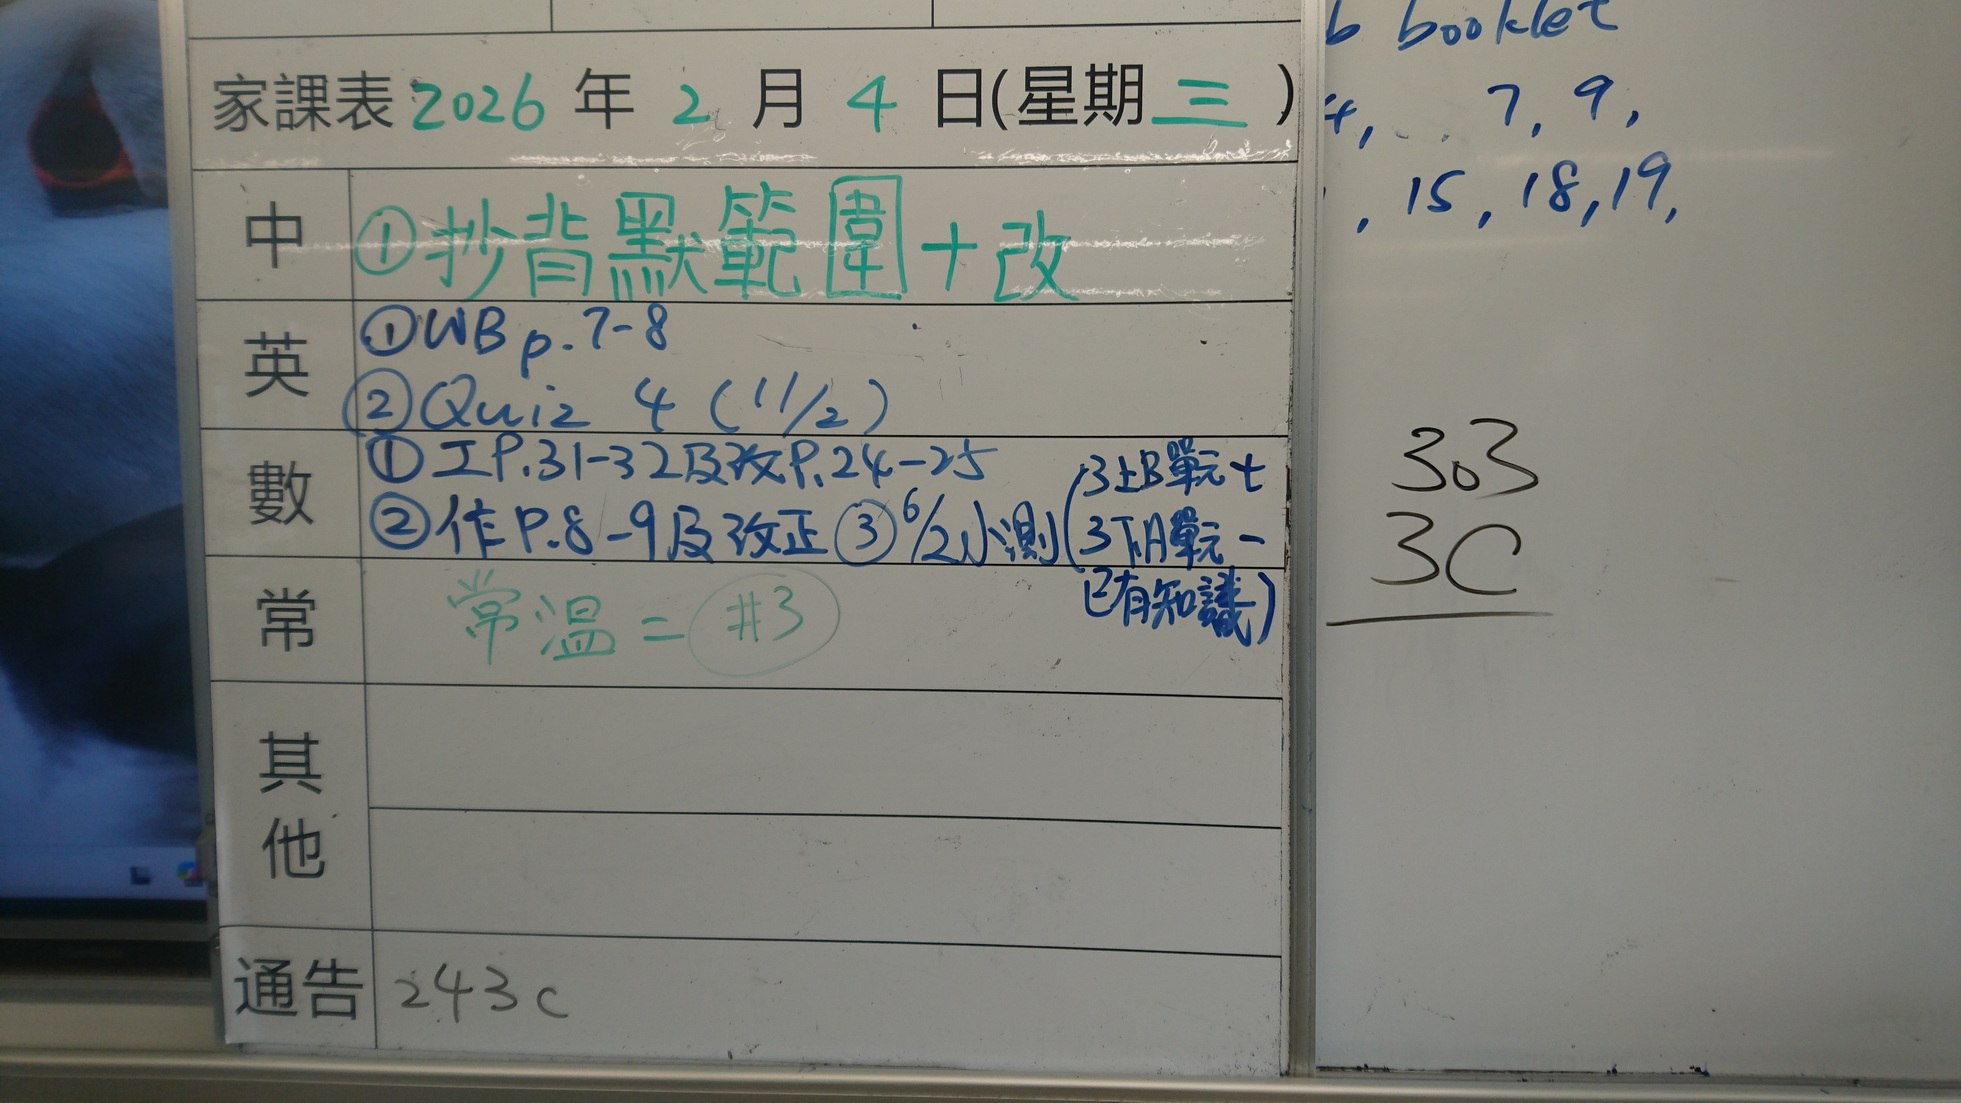 家課表 2026 年 2 月 4 日(星期三)
中 ①抄背默範圍+改
英 ①WB p.7-8
②Quiz 4 (11/2)
數 ①工P.31-32及改P.24-25
②作P.8-9及改正 ③6/2小測(3上B單元七
3下A單元一
已有知識)
常 常溫=#3
其他
通告 243c
booklet
7, 9,
, 15, 18, 19,
303
3C